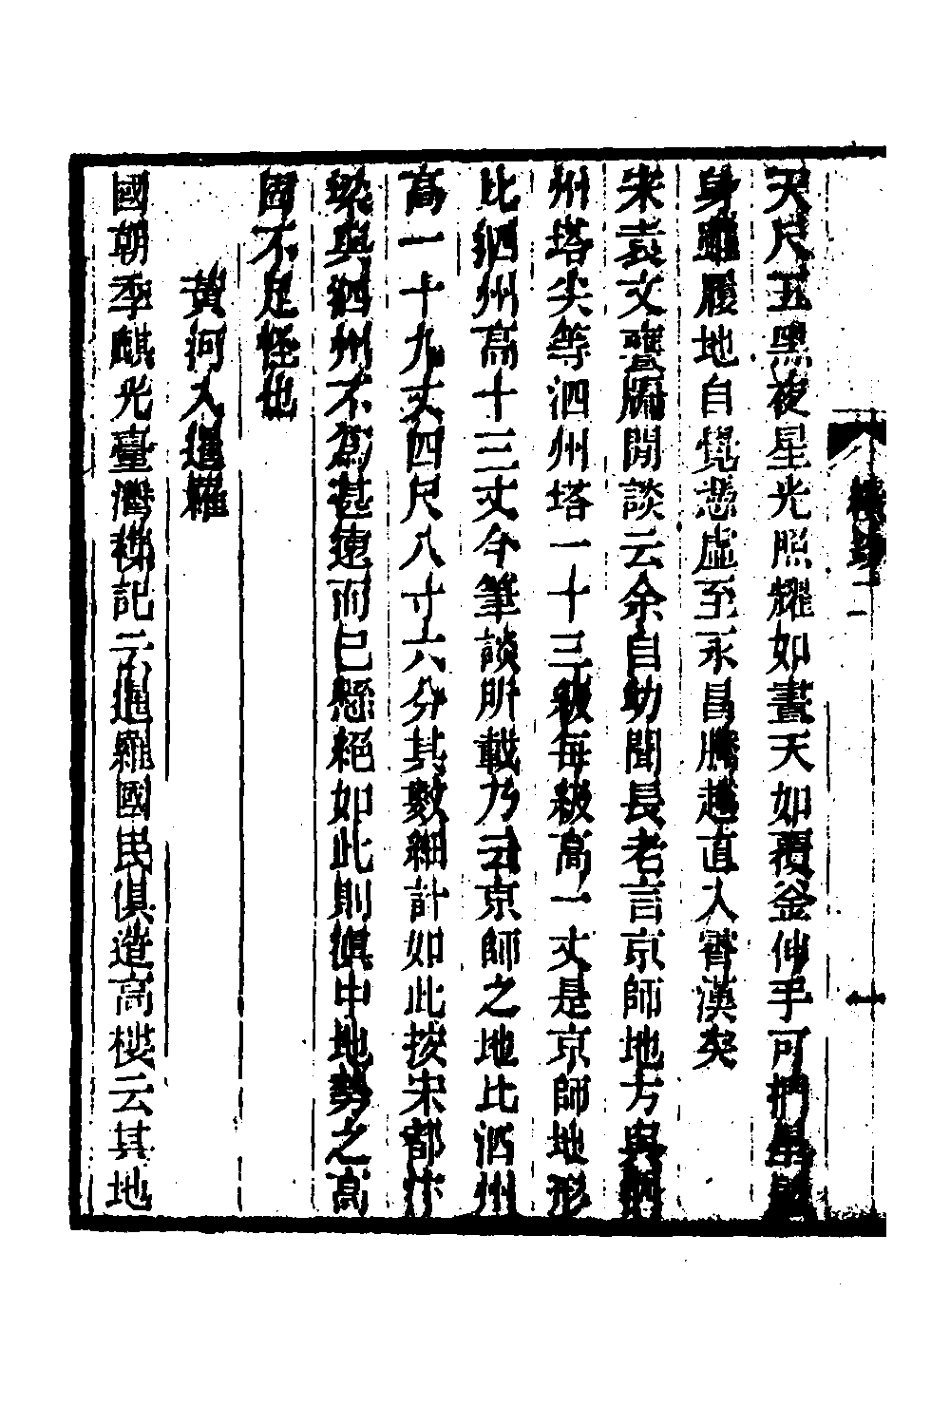 天尺五黑夜星光照耀如晝天如覆釜伸手可捫星
身雖履地自覺憑虛至永昌騰越直入霄漢矣
宋袁文甕牖閒談云余自幼聞長老言京師地方與泗
州塔尖等泗州塔一十三級每級高一丈是京師地形
比泗州高十三丈今筆談所載乃云京師之地比泗州
高一十九丈四尺八寸六分其數細計如此按宋都汴
梁與泗州不為甚遠而已懸絕如此則滇中地勢之高
固不足怪也
黃河入暹羅
國朝季麒光臺灣稗記云暹羅國民俱造高樓云其地
二
十